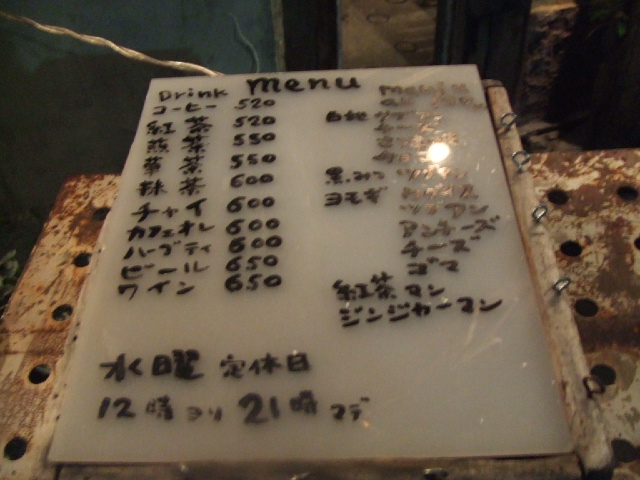 Menu
Drink
コーヒー 520
紅茶 520
煎茶 550
華茶 550
抹茶 600
チャイ 600
カフェオレ 600
ハーブティ 600
ビール 650
ワイン 650
水曜 定休日
12時ヨリ 21時マデ
all
白地 ツブアン
チーズ
黒みつ
ヨモギ
ツブアン
アンチーズ
チーズ
ゴマ
紅茶マン
ジンジャーマン